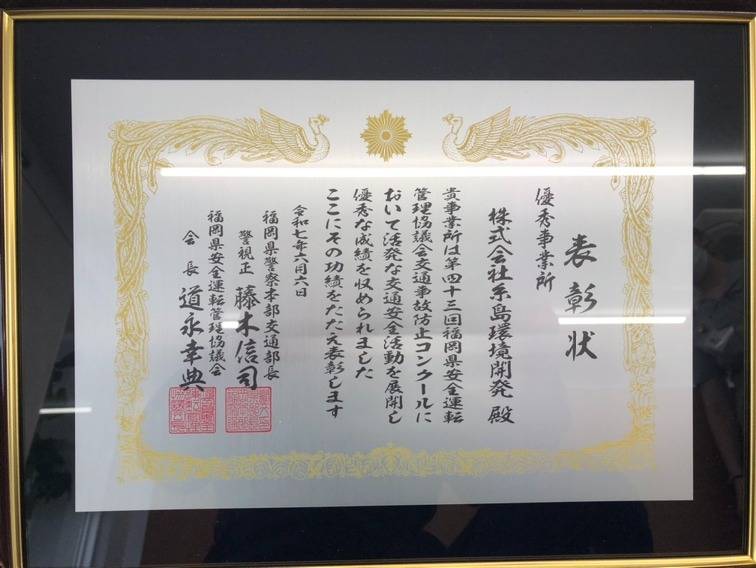 表彰状
優秀事業所
株式会社糸島環境開発 殿
貴事業所は第四十三回福岡県安全運転
管理協議会交通事故防止コンクールに
おいて活発な交通安全活動を展開し
優秀な成績を収められました
ここにその功績をたたえ表彰します
令和七年六月六日
福岡県警察本部交通部長
警視正 藤木信司
福岡県安全運転管理協議会
会長 道永幸典